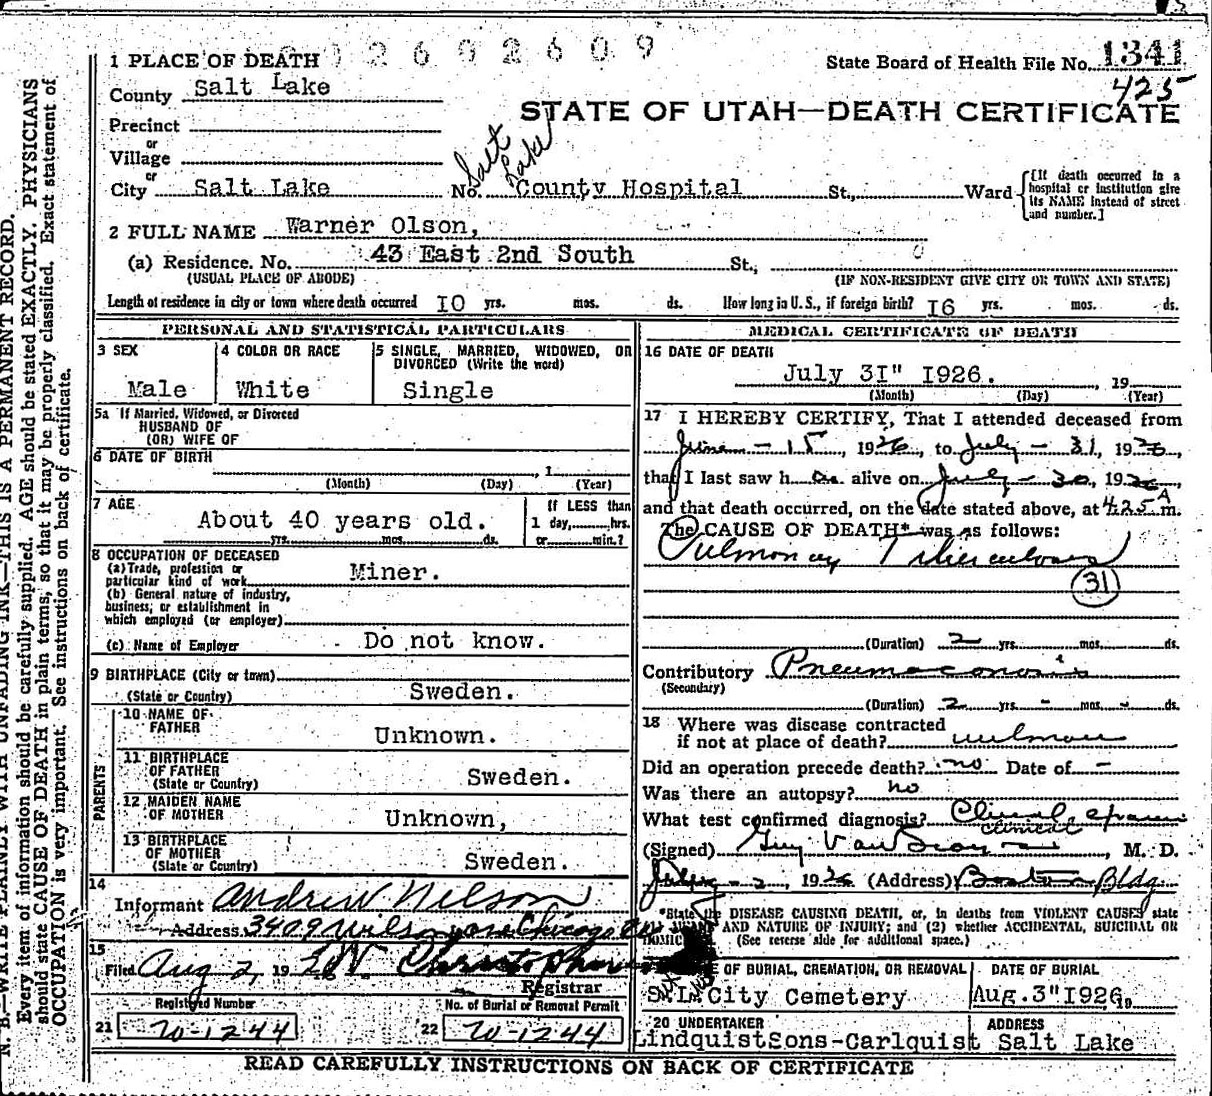 2602609
1 PLACE OF DEATH
State Board of Health File No. 1341
425
County Salt Lake
STATE OF UTAH—DEATH CERTIFICATE
Precinct
or
Village
or
City Salt Lake No. Salt Lake County Hospital St., Ward
[If death occurred in a hospital or institution give its NAME instead of street and number.]
2 FULL NAME Warner Olson,
(a) Residence. No. 43 East 2nd South St.,
(USUAL PLACE OF ABODE) (IF NON-RESIDENT GIVE CITY OR TOWN AND STATE)
Length of residence in city or town where death occurred I0 yrs. mos. ds. How long in U.S., if foreign birth? I6 yrs. mos. ds.
PERSONAL AND STATISTICAL PARTICULARS
3 SEX
Male
4 COLOR OR RACE
White
5 SINGLE, MARRIED, WIDOWED, OR
DIVORCED (Write the word)
Single
5a If Married, Widowed, or Divorced
HUSBAND OF
(OR) WIFE OF
6 DATE OF BIRTH
, 1
(Month) (Day) (Year)
7 AGE
About 40 years old.
yrs. mos. ds.
If LESS than
1 day, hrs.
or min.?
8 OCCUPATION OF DECEASED
(a) Trade, profession or
particular kind of work Miner.
(b) General nature of industry,
business, or establishment in
which employed (or employer)
(c) Name of Employer Do not know.
9 BIRTHPLACE (City or town)
(State or Country) Sweden.
PARENTS
10 NAME OF
FATHER Unknown.
11 BIRTHPLACE
OF FATHER
(State or Country) Sweden.
12 MAIDEN NAME
OF MOTHER Unknown,
13 BIRTHPLACE
OF MOTHER
(State or Country) Sweden.
14
Informant Andrew Nelson
Address. 3409 Wilson ave Chicago
15
Filed Aug 2, 19 26
Registrar
Registered Number No. of Burial or Removal Permit
21 W-1244 22 W-1244
MEDICAL CERTIFICATE OF DEATH
16 DATE OF DEATH
July 3I" I926. , 19
(Month) (Day) (Year)
17 I HEREBY CERTIFY, That I attended deceased from
June - 15, 1926, to July - 31, 1926,
that I last saw h alive on July - 30, 1926,
and that death occurred, on the date stated above, at 4.25 A m.
The CAUSE OF DEATH* was as follows:
Pulmonary Tuberculosis
31
(Duration) 2 yrs. mos. ds.
Contributory Pneumoconosis
(Secondary)
(Duration) 2 yrs. - mos. - ds.
18 Where was disease contracted
if not at place of death? unknown
Did an operation precede death? no Date of -
Was there an autopsy? no
What test confirmed diagnosis? Clinical
clinical
(Signed) Guy Van , M. D.
1926 (Address) Boston Bldg
*State the DISEASE CAUSING DEATH, or, in deaths from VIOLENT CAUSES state
AND NATURE OF INJURY; and (2) whether ACCIDENTAL, SUICIDAL OR
(See reverse side for additional space.)
OF BURIAL, CREMATION, OR REMOVAL
S.L. City Cemetery
DATE OF BURIAL
Aug.3"I926.
20 UNDERTAKER
LindquistSons-Carlquist
ADDRESS
Salt Lake
READ CAREFULLY INSTRUCTIONS ON BACK OF CERTIFICATE
N. B.—WRITE PLAINLY WITH UNFADING INK—THIS IS A PERMANENT RECORD.
Every item of information should be carefully supplied. AGE should be stated EXACTLY. PHYSICIANS
should state CAUSE OF DEATH in plain terms, so that it may be properly classified. Exact statement of
OCCUPATION is very important. See instructions on back of certificate.